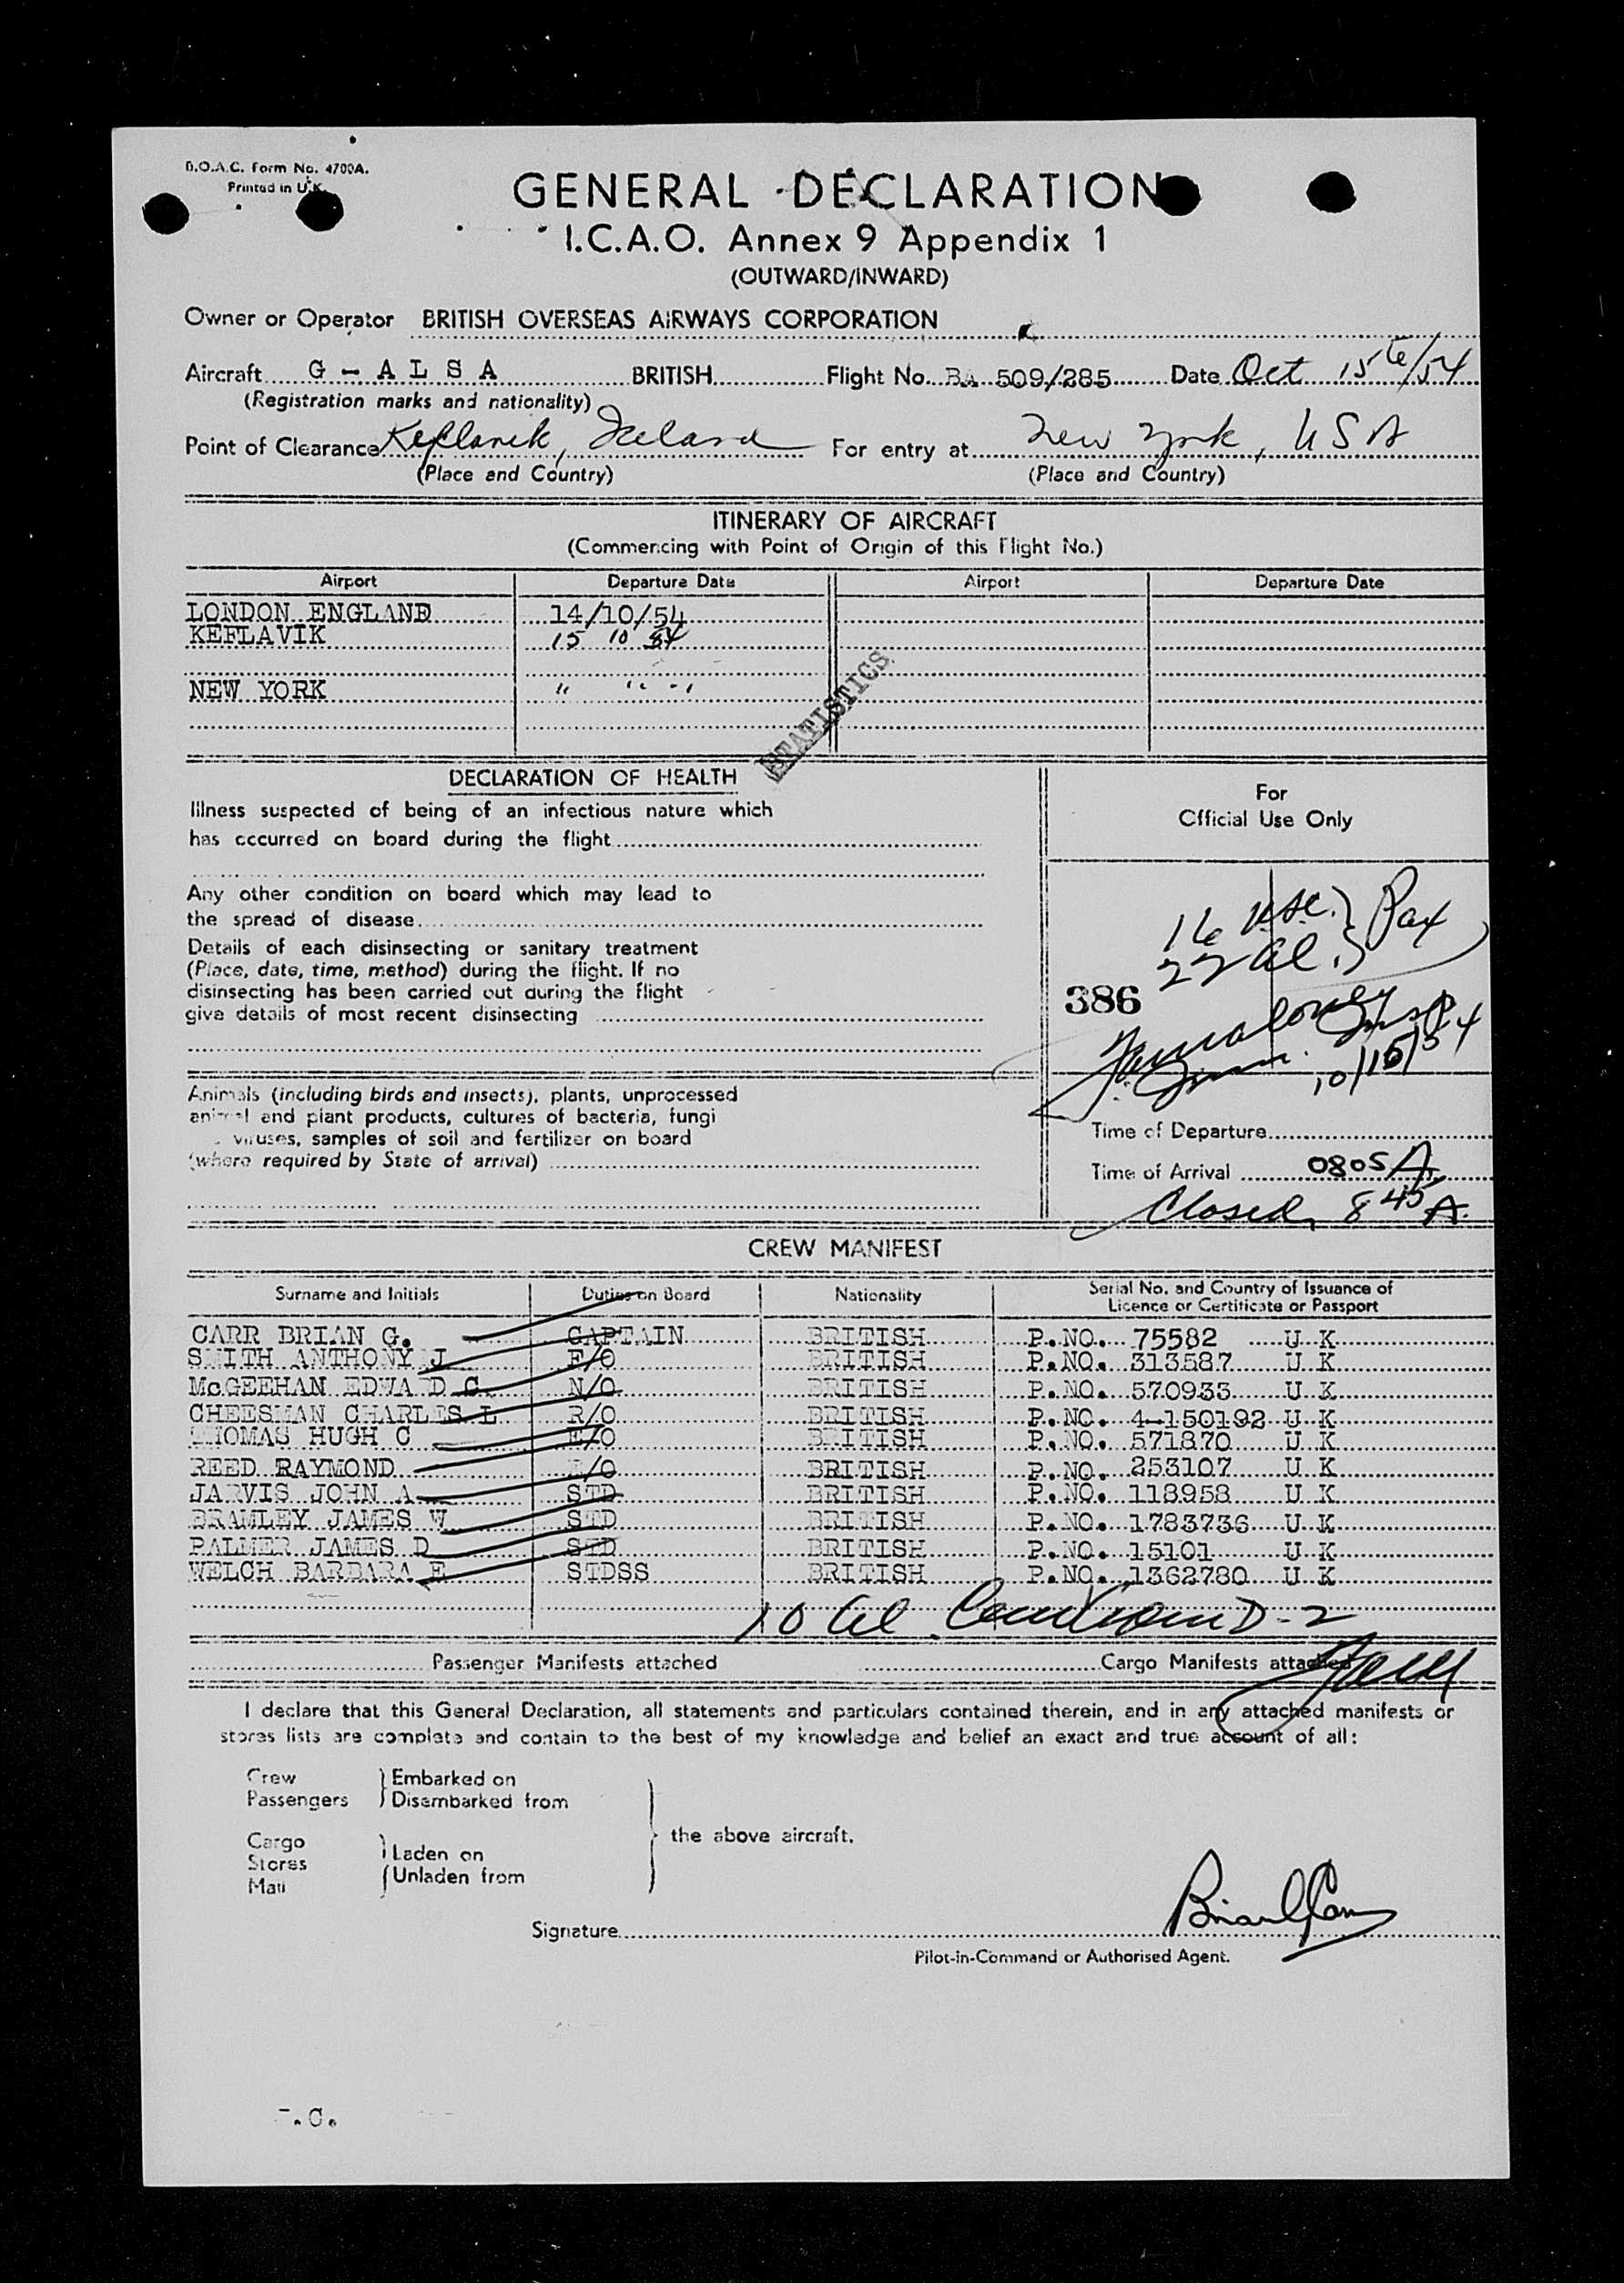 B.O.A.C. Form No. 4700A.
Printed in U.K.
GENERAL DECLARATION
I.C.A.O. Annex 9 Appendix 1
(OUTWARD/INWARD)
Owner or Operator BRITISH OVERSEAS AIRWAYS CORPORATION
Aircraft G - A L S A BRITISH Flight No. BA 509/285 Date Oct 15th/54
(Registration marks and nationality)
Point of Clearance Keflavik, Iceland For entry at New York, USA
(Place and Country) (Place and Country)
ITINERARY OF AIRCRAFT
(Commencing with Point of Origin of this Flight No.)
Airport Departure Date Airport Departure Date
LONDON ENGLAND 14/10/54
KEFLAVIK 15 10 54
NEW YORK " " "
STATISTICS
DECLARATION OF HEALTH
Illness suspected of being of an infectious nature which
has occurred on board during the flight
Any other condition on board which may lead to
the spread of disease
Details of each disinsecting or sanitary treatment
(Place, date, time, method) during the flight. If no
disinsecting has been carried out during the flight
give details of most recent disinsecting
Animals (including birds and insects), plants, unprocessed
animal and plant products, cultures of bacteria, fungi
viruses, samples of soil and fertilizer on board
(where required by State of arrival)
For
Official Use Only
16 USC. } Pax
22 al. }
386
Imm. Insp
10/15/54
Time of Departure
Time of Arrival 0805 A
Closed, 8 45 A.
CREW MANIFEST
Surname and Initials Duties on Board Nationality Serial No. and Country of Issuance of Licence or Certificate or Passport
CARR BRIAN G. CAPTAIN BRITISH P.NO. 75582 U K
SMITH ANTHONY J F/O BRITISH P.NO. 313587 U K
McGEEHAN EDWARD C. N/O BRITISH P.NO. 570933 U K
CHEESMAN CHARLES L R/O BRITISH P.NO. 4-150192 U K
THOMAS HUGH C E/O BRITISH P.NO. 571870 U K
REED RAYMOND /O BRITISH P.NO. 253107 U K
JARVIS JOHN A. STD BRITISH P.NO. 118958 U K
BRAMLEY JAMES W STD BRITISH P.NO. 1783736 U K
PALMER JAMES D STD BRITISH P.NO. 15101 U K
WELCH BARBARA E STDSS BRITISH P.NO. 1362780 U K
10 al D-2
Passenger Manifests attached Cargo Manifests attached
I declare that this General Declaration, all statements and particulars contained therein, and in any attached manifests or
stores lists are complete and contain to the best of my knowledge and belief an exact and true account of all:
Crew } Embarked on
Passengers } Disembarked from
the above aircraft.
Cargo
Stores } Laden on
Mail } Unladen from
Signature Brian G Carr
Pilot-in-Command or Authorised Agent.